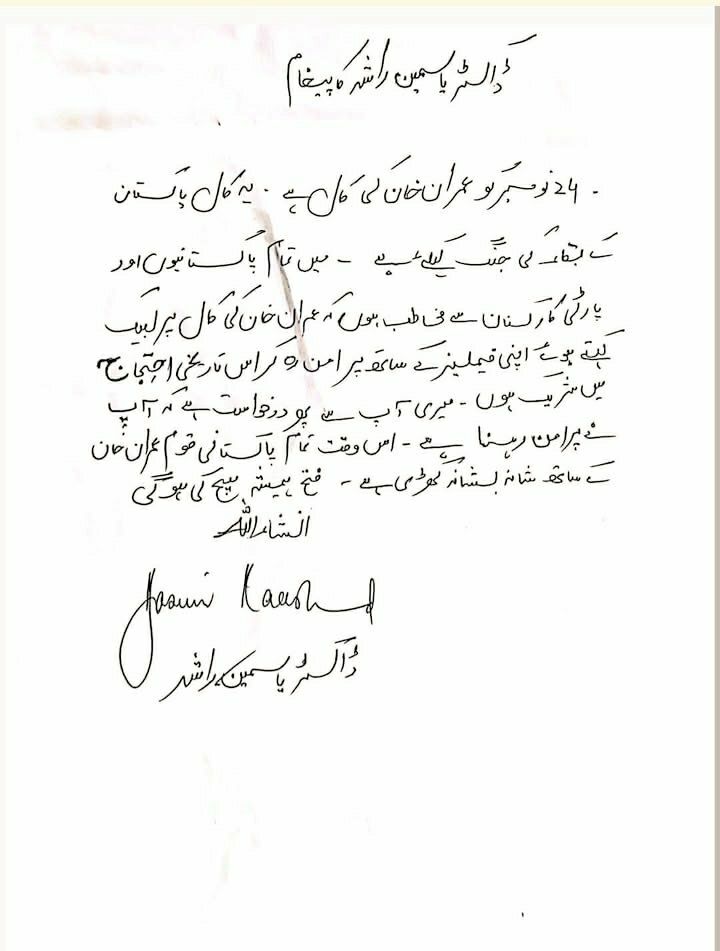 ڈاکٹر یاسمین راشد کا پیغام
۔ 24 نومبر کو عمران خان کی کال ہے ۔ یہ کال پاکستان
کے بقاء کی جنگ کیلئے ہے ۔ میں تمام پاکستانیوں اور
پارٹی کارکنان سے مخاطب ہوں کہ عمران خان کی کال پر لبیک
کہتے ہوئے اپنی فیملیز کے ساتھ پرامن رہ کر اس تاریخی احتجاج
میں شریک ہوں ۔ میری آپ سے درخواست ہے کہ آپ
نے پرامن رہنا ہے ۔ اس وقت تمام پاکستانی قوم عمران خان
کے ساتھ شانہ بشانہ کھڑی ہے ۔ فتح ہمیشہ سچ کی ہو گی
انشاء اللہ
Yasmin Raashid
ڈاکٹر یاسمین راشد